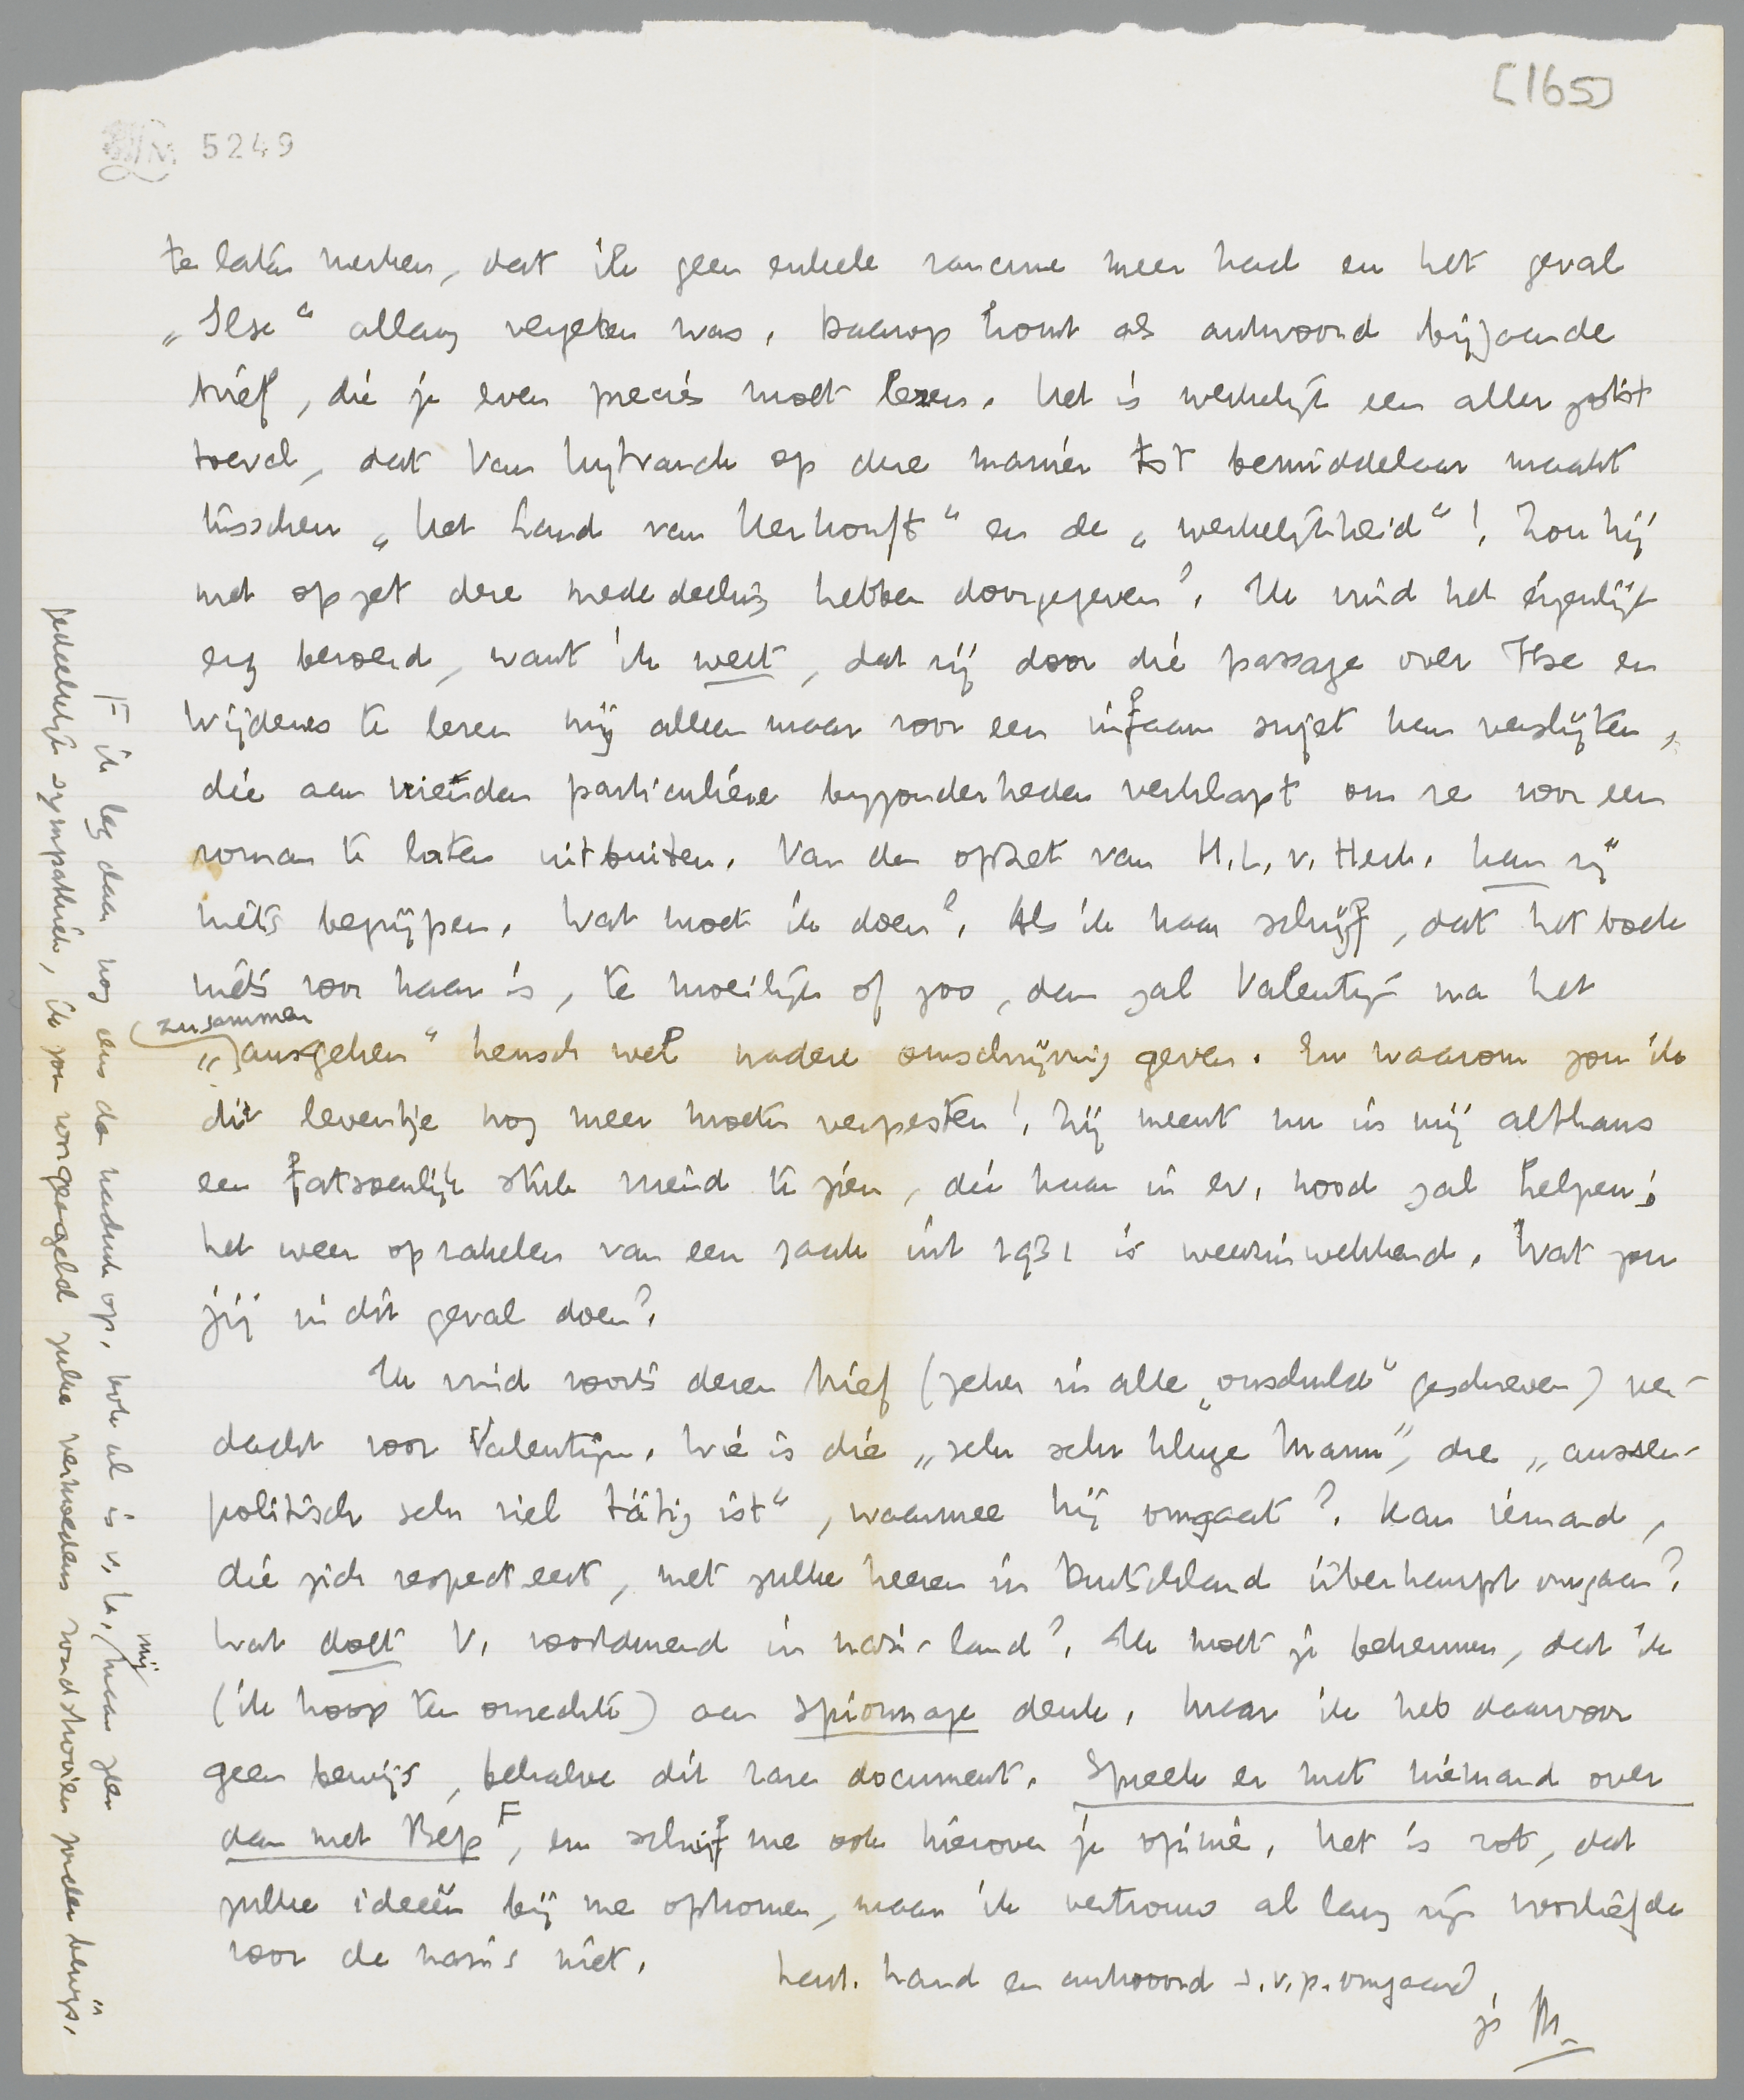 [165]
5249
te laten merken, dat ik geen enkele rancune meer had en het geval
„Ilse“ allang vergeten was. Daarop komt als antwoord bijgaande
brief, die je even precies moet lezen. Het is werkelijk een allerzotst
toeval, dat Van Wijtvanck op deze manier tot bemiddelaar maakt
tusschen „Het Land van Herkomst“ en de „werkelijkheid“! Zou hij
met opzet deze mededeeling hebben doorgegeven? Ik vind het eigenlijk
erg beroerd, want ik weet, dat zij door die passage over Ilse en
Wijdenes te lezen mij alleen maar voor een infaam sujet kan verslijten,
die aan vrienden particuliere bijzonderheden verklapt om ze voor een
roman te laten uitbuiten. Van den opzet van H.L.v. Herk. kan zij
niets begrijpen. Wat moet ik doen? Als ik haar schrijf, dat het boek
niets voor haar is, te moeilijk of zoo, dan zal Valentijn na het
„(zusammen) ausgehen“ heusch wel nadere omschrijving geven. En waarom zou ik
dit leventje nog meer moeten verpesten! Zij meent nu in mij althans
een fatsoenlijk stuk vriend te zien, die haar in ev. nood zal helpen;
het weer oprakelen van een zaak uit 1931 is weerzinwekkend. Wat zou
jij in dit geval doen?
Ik vind voorts dezen brief (zeker in alle „onschuld“ geschreven) ver-
dacht voor Valentijn. Wie is die „sehr sehr kluge Mann“, die „aussen-
politisch sehr viel tätig ist“, waarmee hij omgaat? Kan iemand,
die zich respecteert, met zulke heeren in Duitschland überhaupt omgaan?
Wat doet V. voortdurend in nazi-land? Ik moet je bekennen, dat ik
(ik hoop ten onrechte) aan spionnage denk. Maar ik heb daarvoor
geen bewijs, behalve dit rare document. Spreek er met niemand over
dan met Bep F, en schrijf me ook hierover je opinie. Het is rot, dat
zulke ideeën bij me opkomen, maar ik vertrouw al lang zijn voorliefde
voor de nazi's niet.
Hart. hand en antwoord s.v.p. omgaand,
je M.
F ik leg daar nog eens den nadruk op. Ook al is V. h. mij maar zeer
gedeeltelijk sympathiek, ik zou ongeageld zulke vermoedens rondstrooien zonder bewijs.